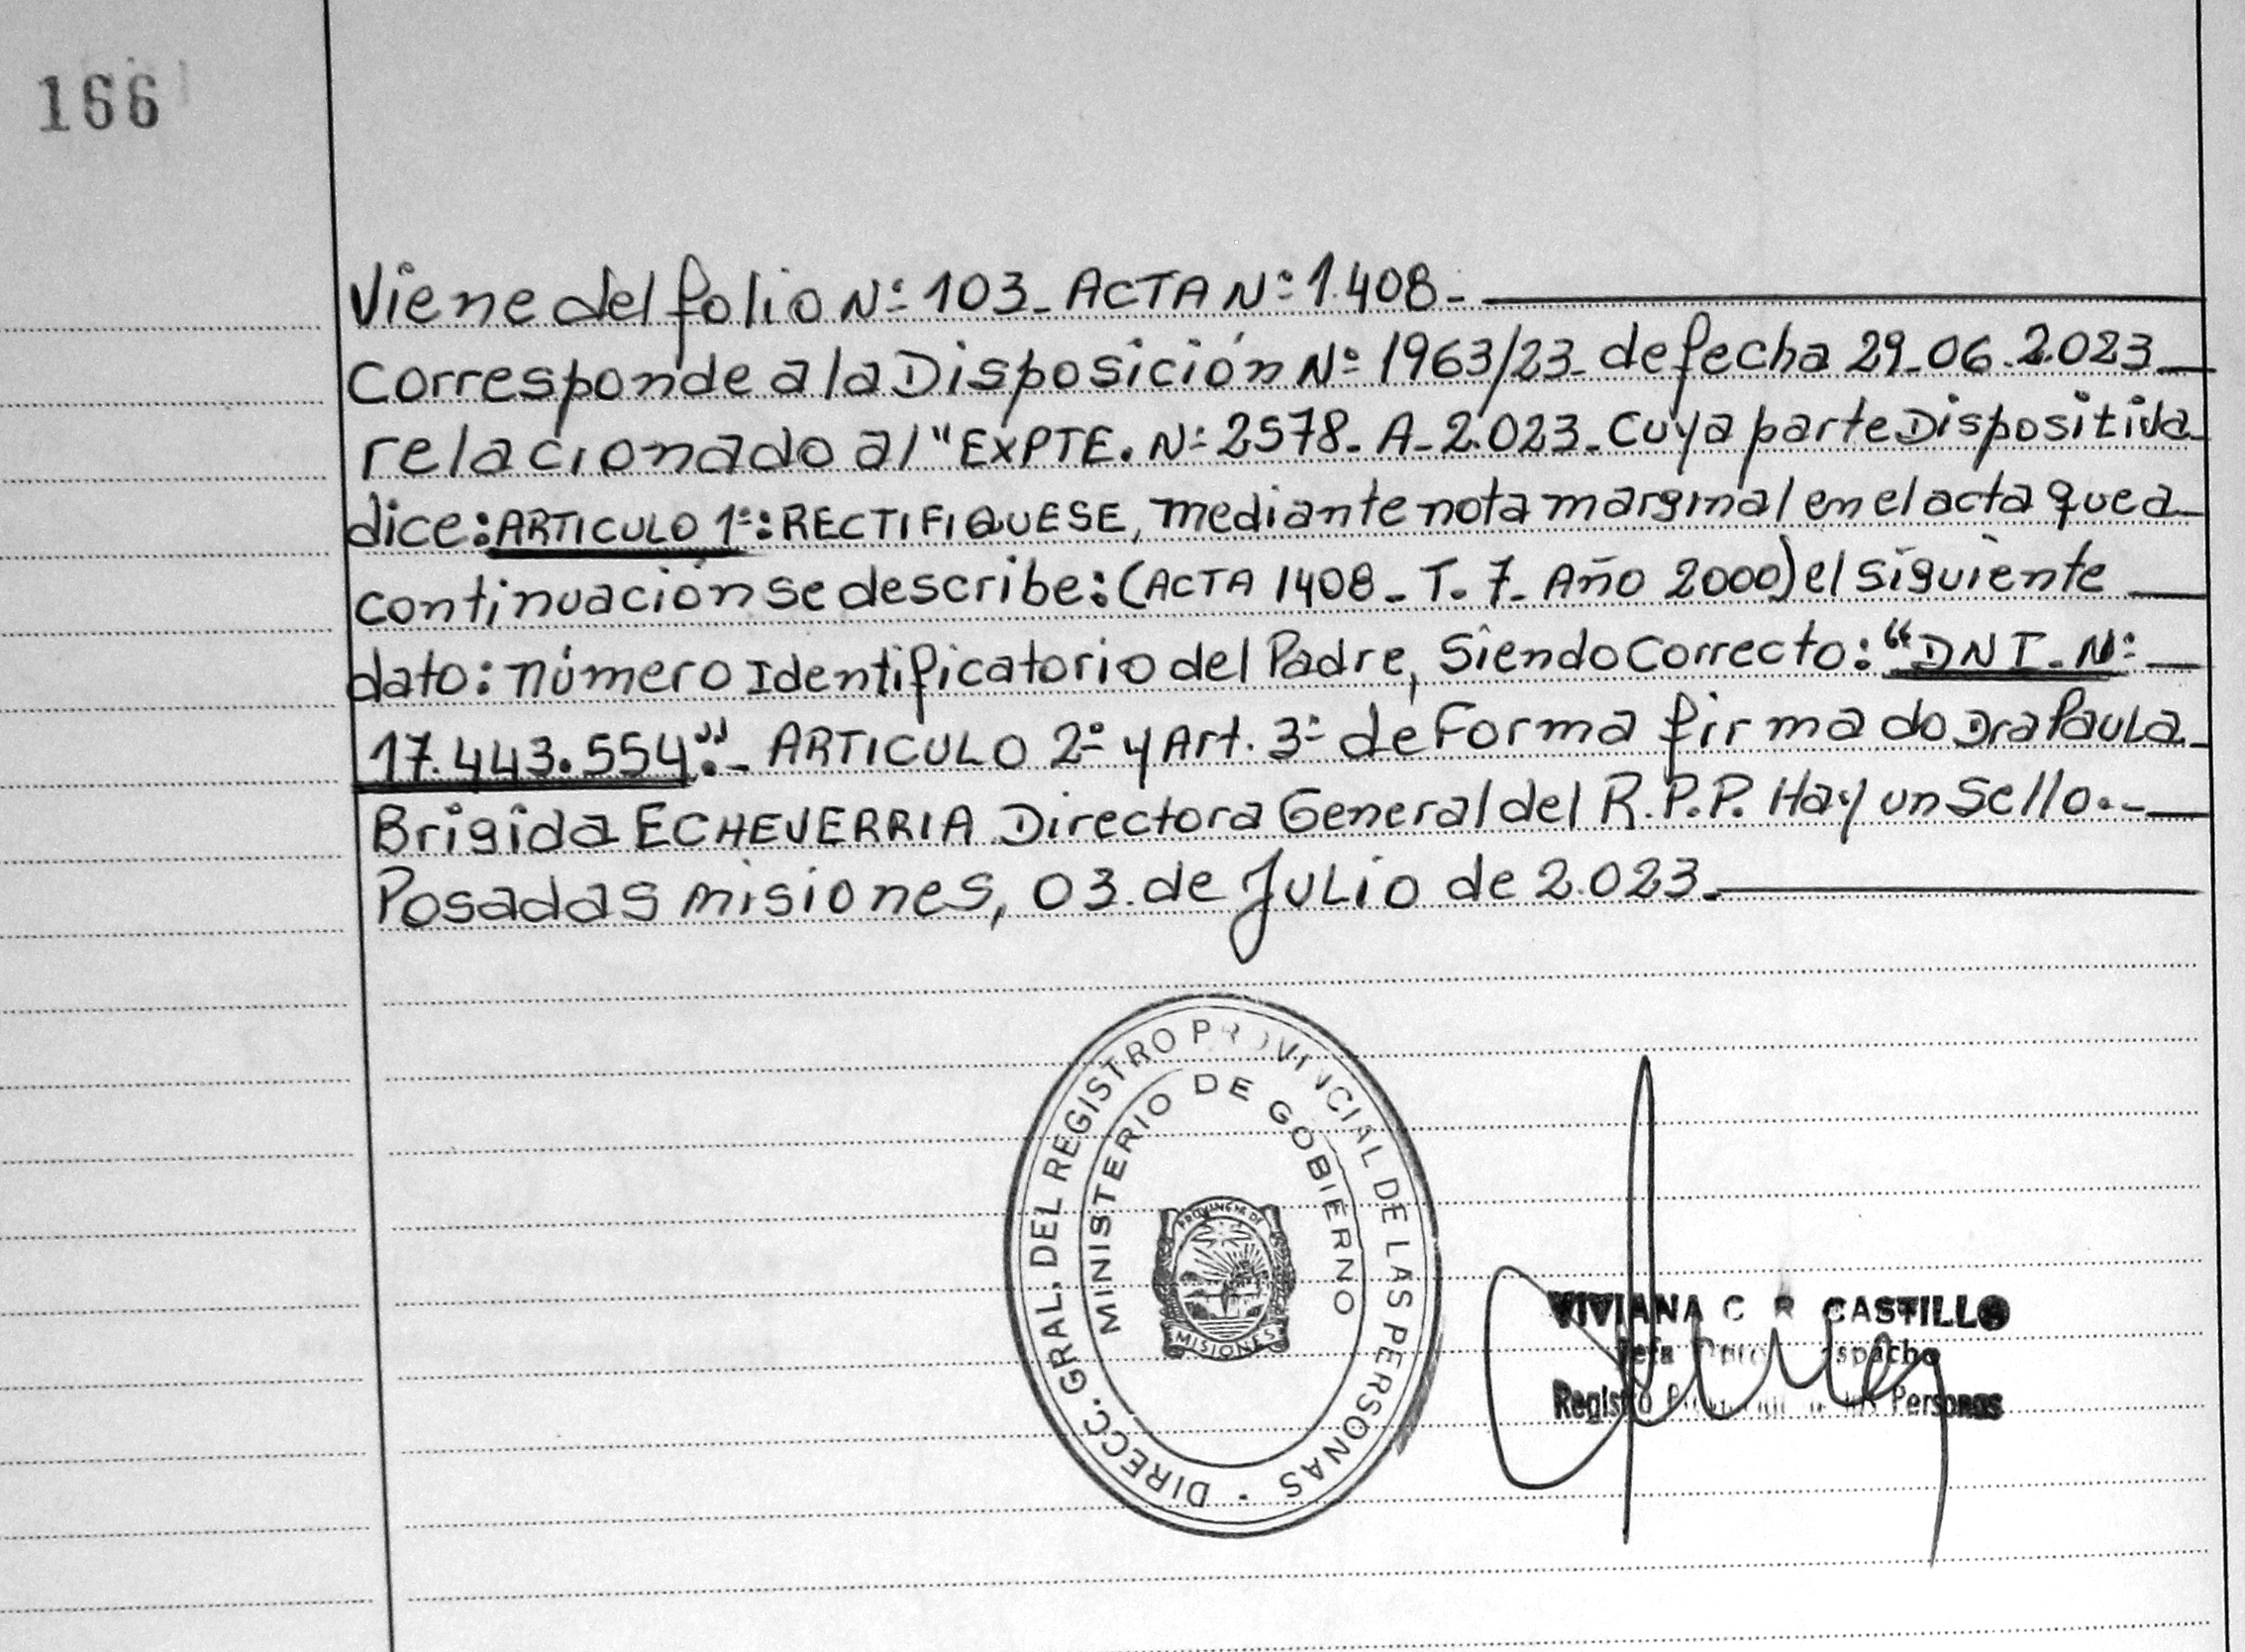 166
Viene del folio Nº 103_ ACTA Nº 1.408_
Corresponde a la Disposición Nº 1963/23_ de fecha 29_06.2.023_
relacionado al "EXPTE. Nº 2578_ A_2.023_ Cuya parte Dispositiva
dice: ARTICULO 1º: RECTIFIQUESE, mediante nota marginal en el acta que a
continuación se describe: (ACTA 1408_ T. 7_ Año 2000) el siguiente
dato: número Identificatorio del Padre, Siendo Correcto: "DNI. Nº
17.443.554"._ ARTICULO 2º y Art. 3º de Forma firmado Dra Paula
Brigida ECHEVERRIA Directora General del R.P.P. Hay un Sello._
Posadas misiones, 03 de Julio de 2.023_
DIRECC. GRAL. DEL REGISTRO PROVINCIAL DE LAS PERSONAS
MINISTERIO DE GOBIERNO
PROVINCIA DE
MISIONES
VIVIANA C R CASTILLO
Jefa
Registro Personas